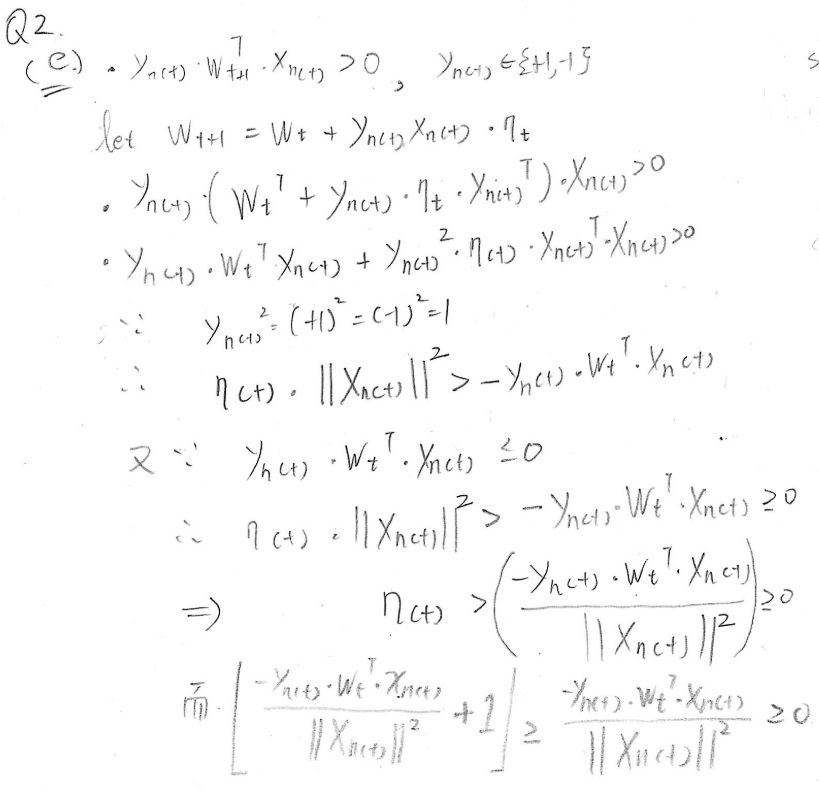 Q2.
(e.) • y_{n(t)} · W_{t+1}^T · X_{n(t)} > 0, y_{n(t)} ∈ {+1, -1}
let W_{t+1} = W_t + y_{n(t)} X_{n(t)} · η_t
• y_{n(t)} · (W_t^T + y_{n(t)} · η_t · X_{n(t)}^T) · X_{n(t)} > 0
• y_{n(t)} · W_t^T X_{n(t)} + y_{n(t)}^2 · η(t) · X_{n(t)}^T · X_{n(t)} > 0
∵ y_{n(t)}^2 = (+1)^2 = (-1)^2 = 1
∴ η(t) · ||X_{n(t)}||^2 > -y_{n(t)} · W_t^T · X_{n(t)}
又 ∵ y_{n(t)} · W_t^T · X_{n(t)} ≤ 0
∴ η(t) · ||X_{n(t)}||^2 > -y_{n(t)} · W_t^T · X_{n(t)} ≥ 0
⇒ η(t) > (\frac{-y_{n(t)} · W_t^T · X_{n(t)}}{||X_{n(t)}||^2}) ≥ 0
而 ⌊\frac{-y_{n(t)} · W_t^T · X_{n(t)}}{||X_{n(t)}||^2} + 1⌋ ≥ \frac{-y_{n(t)} · W_t^T · X_{n(t)}}{||X_{n(t)}||^2} ≥ 0